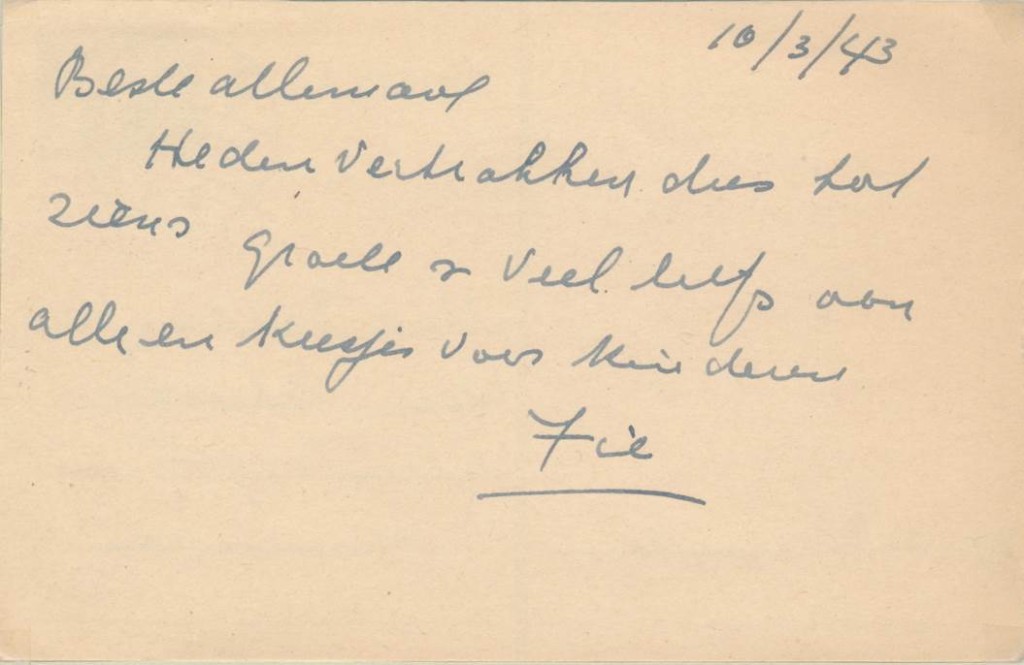 10/3/43
Beste allemaal
Heden vertrokken dus tot
ziens Groete & veel liefs aan
alle en kusjes voor kinderen
Fie